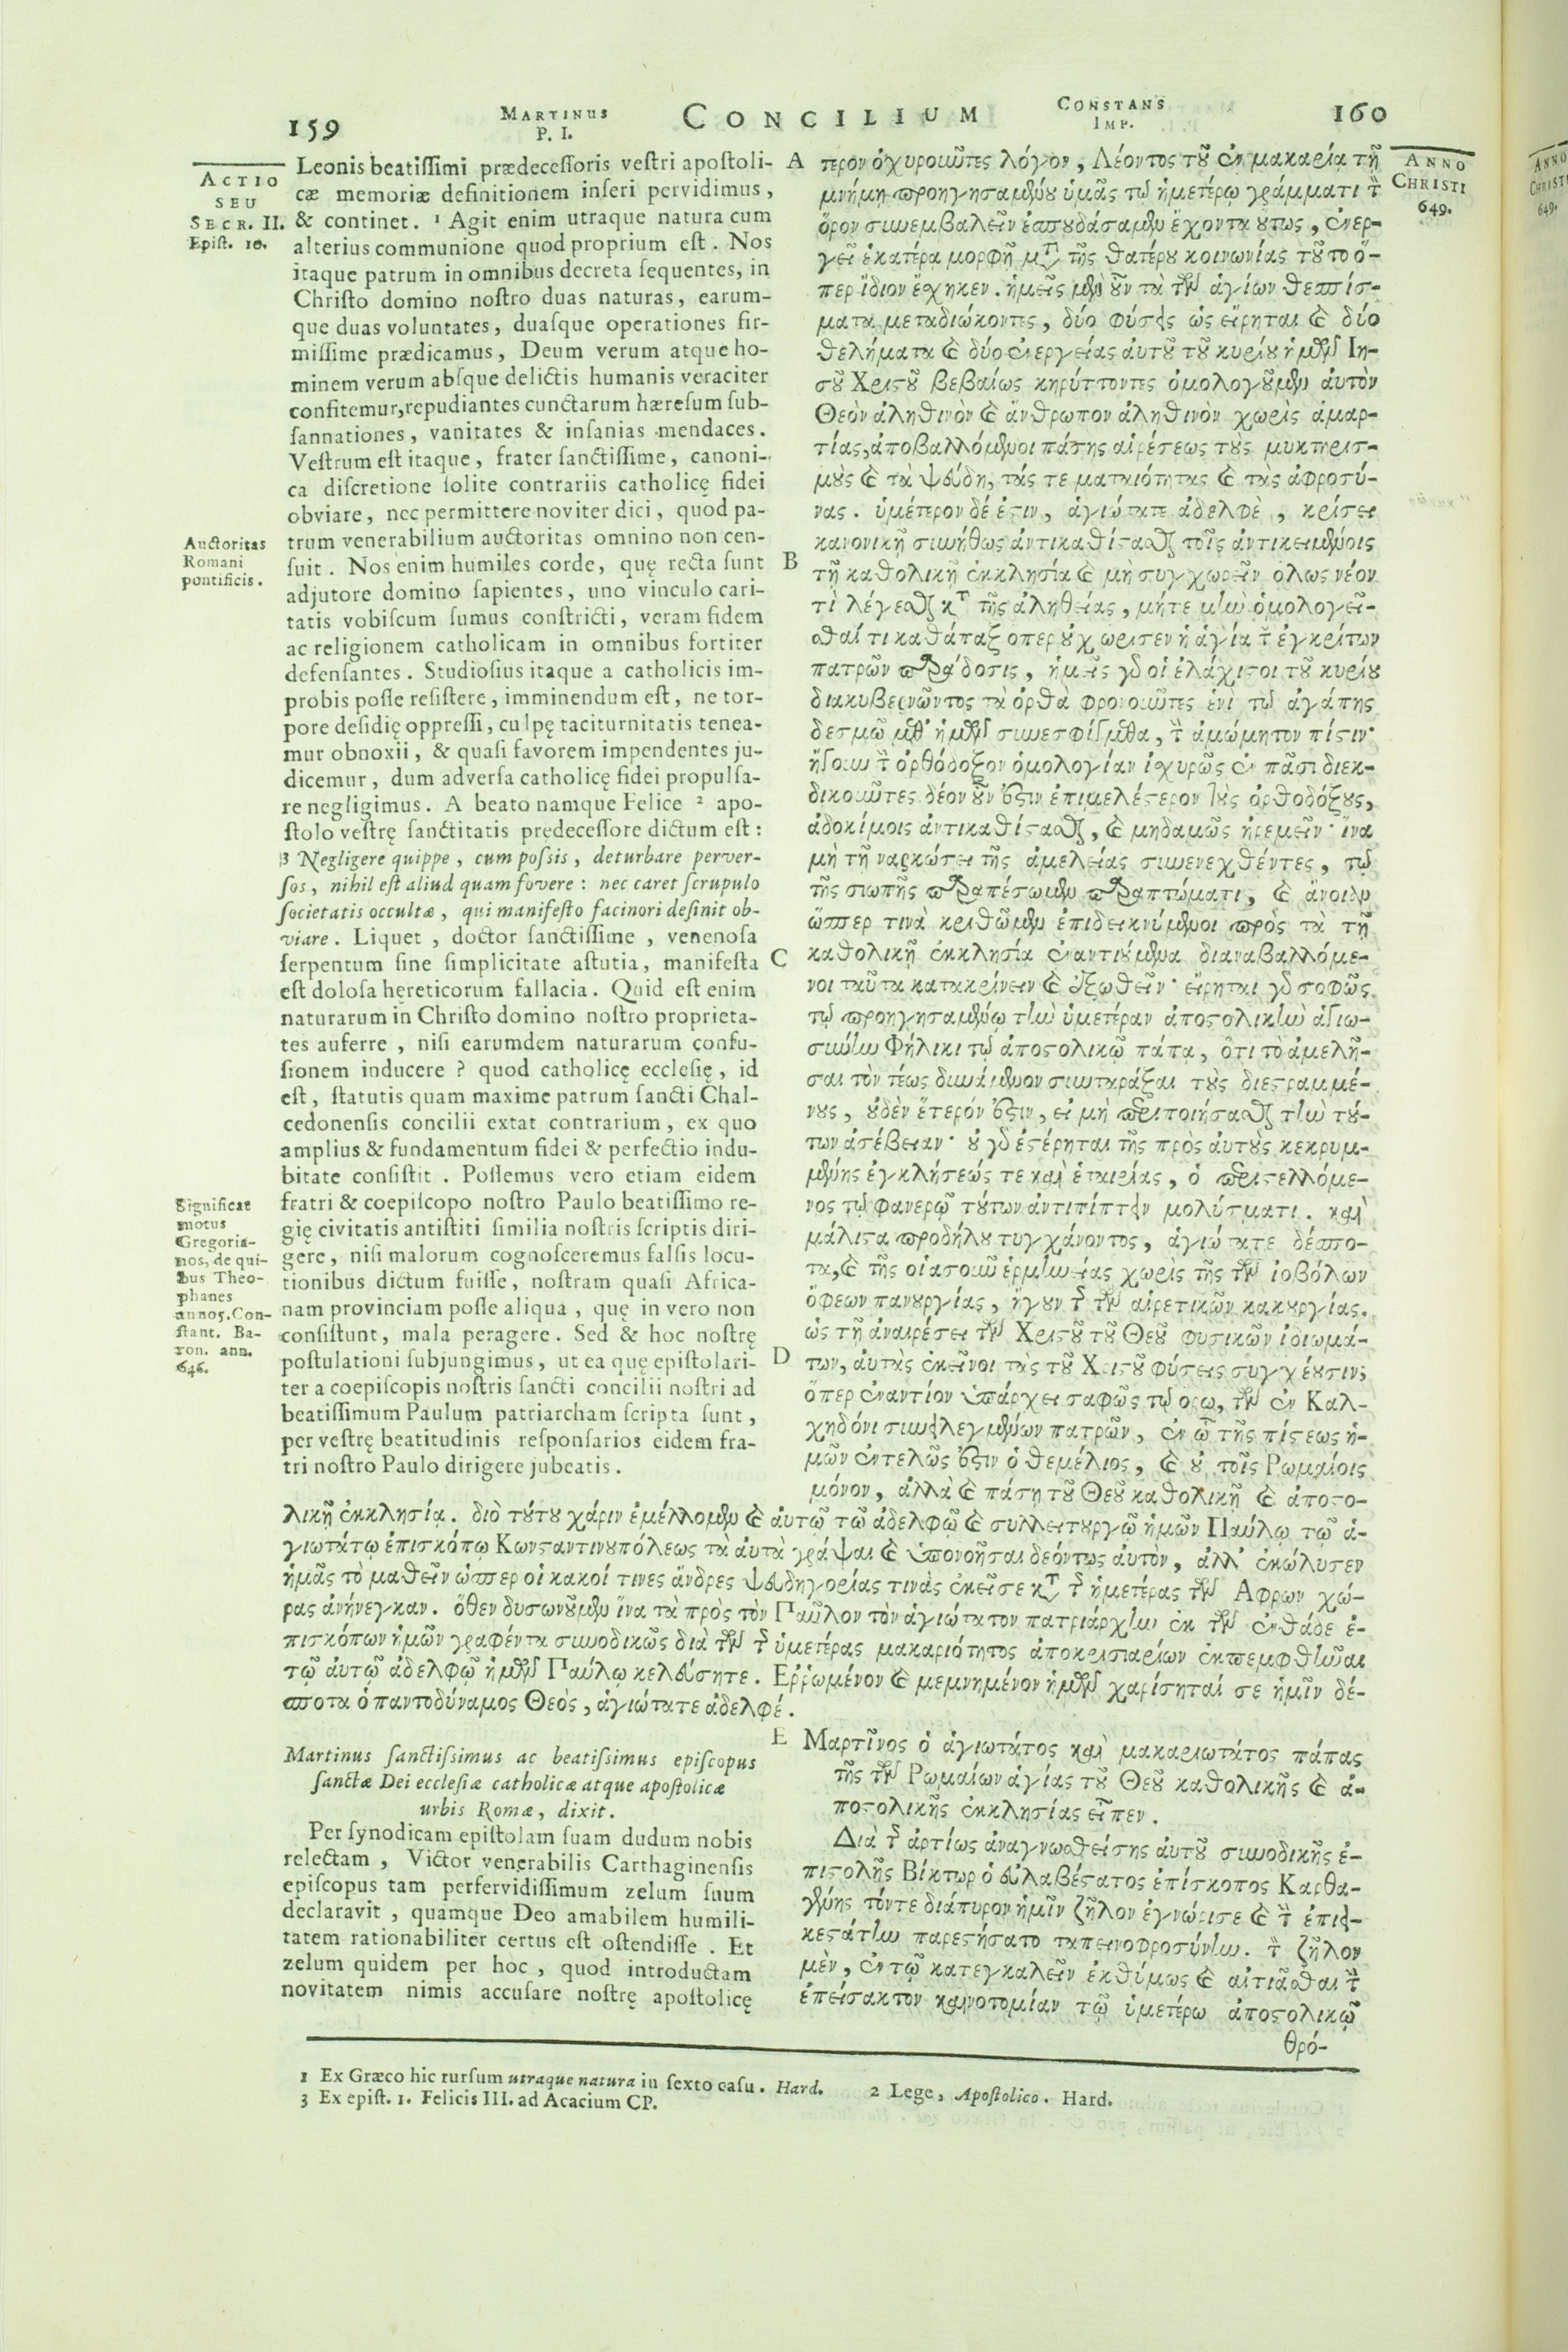 159
MARTINUS
P. I.
CONCILIUM
CONSTANS
IMP.
160
ACTIO
SEU
SECR. II.
Epist. 10.
Leonis beatissimi prædecessoris vestri apostoli-
cæ memoriæ definitionem inseri pervidimus,
& continet. 1 Agit enim utraque natura cum
alterius communione quod proprium est. Nos
itaque patrum in omnibus decreta sequentes, in
Christo domino nostro duas naturas, earum-
que duas voluntates, duasque operationes fir-
missime prædicamus, Deum verum atque ho-
minem verum absque delictis humanis veraciter
confitemur, repudiantes cunctarum hæresum sub-
sannationes, vanitates & insanias mendaces.
Vestrum est itaque, frater sanctissime, canoni-
ca discretione solite contrariis catholicę fidei
obviare, nec permittere noviter dici, quod pa-
trum venerabilium auctoritas omnino non cen-
suit. Nos enim humiles corde, quę recta sunt
adjutore domino sapientes, uno vinculo cari-
tatis vobiscum sumus constricti, veram fidem
ac religionem catholicam in omnibus fortiter
defensantes. Studiosius itaque a catholicis im-
probis posse resistere, imminendum est, ne tor-
pore desidię oppressi, culpę taciturnitatis tenea-
mur obnoxii, & quasi favorem impendentes ju-
dicemur, dum adversa catholicę fidei propulsa-
re negligimus. A beato namque Felice 2 apo-
stolo vestrę sanctitatis pręedecessore dictum est:
3 Negligere quippe, cum possis, deturbare perver-
sos, nihil est aliud quam fovere: nec caret scrupulo
societatis occultæ, qui manifesto facinori desinit ob-
viare. Liquet, doctor sanctissime, venenosa
serpentum sine simplicitate astutia, manifesta
est dolosa hęreticorum fallacia. Quid est enim
naturarum in Christo domino nostro proprieta-
tes auferre, nisi earumdem naturarum confu-
sionem inducere? quod catholicę ecclesię, id
est, statutis quam maxime patrum sancti Chal-
cedonensis concilii extat contrarium, ex quo
amplius & fundamentum fidei & perfectio indu-
bitate consistit. Possemus vero etiam eidem
fratri & coepiscopo nostro Paulo beatissimo re-
gię civitatis antistiti similia nostris scriptis diri-
gere, nisi malorum cognosceremus falsis locu-
tionibus dictum fuisse, nostram quasi Africa-
nam provinciam posse aliqua, quę in vero non
consistunt, mala peragere. Sed & hoc nostrę
postulationi subjungimus, ut ea quę epistolari-
ter a coepiscopis nostris sancti concilii nostri ad
beatissimum Paulum patriarcham scripta sunt,
per vestrę beatitudinis responsarios eidem fra-
tri nostro Paulo dirigere jubeatis.
Auctoritas
Romani
pontificis.
Significat
motus
Gregoria-
nos, de qui-
bus Theo-
phanes
anno 5. Con-
stant. Ba-
ron. ann.
646.
A
B
C
D
E
ANNO
CHRISTI
649.
τερον ὀχυροῦντες λόγον, Λέοντος τοῦ ἐν μακαρίᾳ τῇ
μνήμῃ προηγησαμένου ὑμᾶς τῷ ἡμετέρῳ γράμματι τὸν
ὅρον συνεμβαλεῖν ἐσπουδάσαμεν ἔχοντα οὕτως, ἐνερ-
γεῖ ἑκατέρα μορφῇ μετὰ τῆς θατέρου κοινωνίας τοῦτο ὅ-
περ ἴδιον ἔσχηκεν. ἡμεῖς μὲν οὖν τὰ τῶν ἁγίων θεσπίσ-
ματα μεταδιώκοντες, δύο φύσεις ὡς εἴρηται καὶ δύο
θελήματα καὶ δύο ἐνεργείας αὐτοῦ τοῦ κυρίου ἡμῶν Ιη-
σοῦ Χριστοῦ βεβαίως κηρύττοντες ὁμολογοῦμεν αὐτὸν
Θεὸν ἀληθινὸν καὶ ἄνθρωπον ἀληθινὸν χωρὶς ἁμαρ-
τίας, ἀποβαλλόμενοι πάσης αἱρέσεως τοὺς μυκτηρισ-
μοὺς καὶ τὰ ψεύδη, τάς τε ματαιότητας καὶ τὰς ἀφροσύ-
νας. ὑμέτερον δέ ἐστιν, ἁγιώτατε ἀδελφὲ, κρίσει
κανονικῇ συνήθως ἀντικαθίστασθαι τοῖς ἀντικειμένοις
τῇ καθολικῇ ἐκκλησίᾳ καὶ μὴ συγχωρεῖν ὅλως νέον
τὶ λέγεσθαι κατὰ τῆς ἀληθείας, μήτε μὴν ὁμολογεῖ-
σθαί τι καθάπαξ ὅπερ οὐχ ὥρισεν ἡ ἁγία τῶν ἐγκρίτων
πατρῶν παράδοσις, ἡμεῖς γὰρ οἱ ἐλάχιστοι τοῦ κυρίου
διακυβερνῶντος τὰ ὀρθὰ φρονοῦντες ἑνὶ τῷ ἀγάπης
δεσμῷ μεθ' ἡμῶν συνεσφίγμεθα, τὴν ἀμώμητον πίστιν·
ἤγουν τὴν ὀρθόδοξον ὁμολογίαν ἰσχυρῶς ἐν πᾶσι διεκ-
δικοῦντες. δέον οὖν ἐστὶν ἐπιμελέστερον τοὺς ὀρθοδόξους,
ἀδοκίμοις ἀντικαθίστασθαι, καὶ μηδαμῶς ἠρεμεῖν· ἵνα
μὴ τῇ ναρκώσει τῆς ἀμελείας συνενεχθέντες, τῷ
τῆς σιωπῆς παραπέσωμεν παραπτώματι, καὶ
ὥσπερ τινὰ κριθῶμεν ἐπιδεικνύμενοι πρὸς τὰ τῇ
καθολικῇ ἐκκλησίᾳ ἐναντιούμενα διαναβαλλόμε-
νοι ταῦτα κατακρίνειν καὶ ἐξωθεῖν· εἴρηται γὰρ σοφῶς
τῷ προηγησαμένῳ τὴν ὑμετέραν ἀποστολικὴν ἁγιω-
σύνην Φήλικι τῷ ἀποστολικῷ πάπα, ὅτι τὸ ἀμελῆ-
σαι τὸν τέως δυνάμενον συνταράξαι τοὺς διεστραμμέ-
νους, οὐδὲν ἕτερόν ἐστιν, εἰ μὴ περιποιήσασθαι τὴν τού-
των ἀσέβειαν· οὐ γὰρ ἐστέρηται τῆς πρὸς αὐτοὺς κεκρυμ-
μένης ἐγκλήσεώς τε καὶ ἑταιρίας, ὁ περιστελλόμε-
νος τῷ φανερῷ τούτων ἀντιπίπτειν μολύσματι. καὶ
μάλιστα προδήλου τυγχάνοντος, ἁγιώτατε δέσπο-
τα, καὶ τῆς οἱασοῦν ἑρμηνείας χωρὶς τῆς τῶν ἰοβόλων
ὄφεων πανουργίας, ἤγουν τῆς τῶν αἱρετικῶν κακουργίας.
ὡς τῇ ἀναιρέσει τῶν Χριστοῦ τοῦ Θεοῦ φυσικῶν ἰδιωμά-
των, αὐτὰς ἐκεῖνοι τὰς τοῦ Χριστοῦ φύσεις συγχέουσιν;
ὅπερ ἐναντίον ὑπάρχει σαφῶς τῷ ὅρῳ, τῶν ἐν Καλ-
χηδόνι συνειλεγμένων πατρῶν, ἐν ᾧ τῆς πίστεως ἡ-
μῶν ἐντελῶς ἐστὶν ὁ θεμέλιος, καὶ οὐ τοῖς Ρωμαίοις
μόνον, ἀλλὰ καὶ πάσῃ τοῦ Θεοῦ καθολικῇ καὶ ἀποστο-
λικῇ ἐκκλησίᾳ. διὸ τούτου χάριν ἐμέλλομεν καὶ αὐτῷ τῷ ἀδελφῷ καὶ συλλειτουργῷ ἡμῶν Παύλῳ τῷ ἁ-
γιωτάτῳ ἐπισκόπῳ Κωνσταντινουπόλεως τὰ αὐτὰ γράψαι καὶ ὑπονοῆσαι δεόντως αὐτὸν, ἀλλ' ἐκώλυσεν
ἡμᾶς τὸ μαθεῖν ὥσπερ οἱ κακοί τινες ἄνδρες ψευδηγορίας τινὰς ἐκεῖσε κατὰ τῆς ἡμετέρας τῶν Αφρων χώ-
ρας ἀνήνεγκαν. ὅθεν δυσωποῦμεν ἵνα τὰ πρὸς τὸν Παῦλον τὸν ἁγιώτατον πατριάρχην ἐκ τῶν ἐνθάδε ἐ-
πισκόπων ἡμῶν γραφέντα συνοδικῶς διὰ τῶν τῆς ὑμετέρας μακαριότητος ἀποκρισιαρίων ἐκπεμφθῆναι
τῷ αὐτῷ ἀδελφῷ ἡμῶν Παύλῳ κελεύσητε. Ερρωμένον καὶ μεμνημένον ἡμῶν χαρίσηταί σε ἡμῖν δέ-
σποτα ὁ παντοδύναμος Θεὸς, ἁγιώτατε ἀδελφέ.
Martinus sanctissimus ac beatissimus episcopus
sanctæ Dei ecclesiæ catholicæ atque apostolicæ
urbis Romæ, dixit.
Per synodicam epistolam suam dudum nobis
relectam, Victor venerabilis Carthaginensis
episcopus tam perfervidissimum zelum suum
declaravit, quamque Deo amabilem humili-
tatem rationabiliter certus est ostendisse. Et
zelum quidem per hoc, quod introductam
novitatem nimis accusare nostrę apostolicę
Μαρτῖνος ὁ ἁγιωτάτος καὶ μακαριωτάτος πάπας
τῆς τῶν Ρωμαίων ἁγίας τοῦ Θεοῦ καθολικῆς καὶ ἀ-
ποστολικῆς ἐκκλησίας εἶπεν.
Διὰ τῆς ἀρτίως ἀναγνωσθείσης αὐτοῦ συνοδικῆς ἐ-
πιστολῆς Βίκτωρ ὁ εὐλαβέστατος ἐπίσκοπος Καρθα-
γένης τόντε διάπυρον ἡμῖν ζῆλον ἐγνώρισε καὶ τὴν ἐπιει-
κεστάτην παρεστήσατο ταπεινοφροσύνην. τὸν ζῆλον
μὲν, ἐν τῷ κατεγκαλεῖν ἐκθύμως καὶ αἰτιᾶσθαι τὴν
ἐπείσακτον καινοτομίαν τῷ ὑμετέρω ἀποστολικῷ
θρό-
1 Ex Græco hic rursum utraque natura in sexto casu. Hard.
2 Lege, Apostolico. Hard.
3 Ex epist. 1. Felicis III. ad Acacium CP.